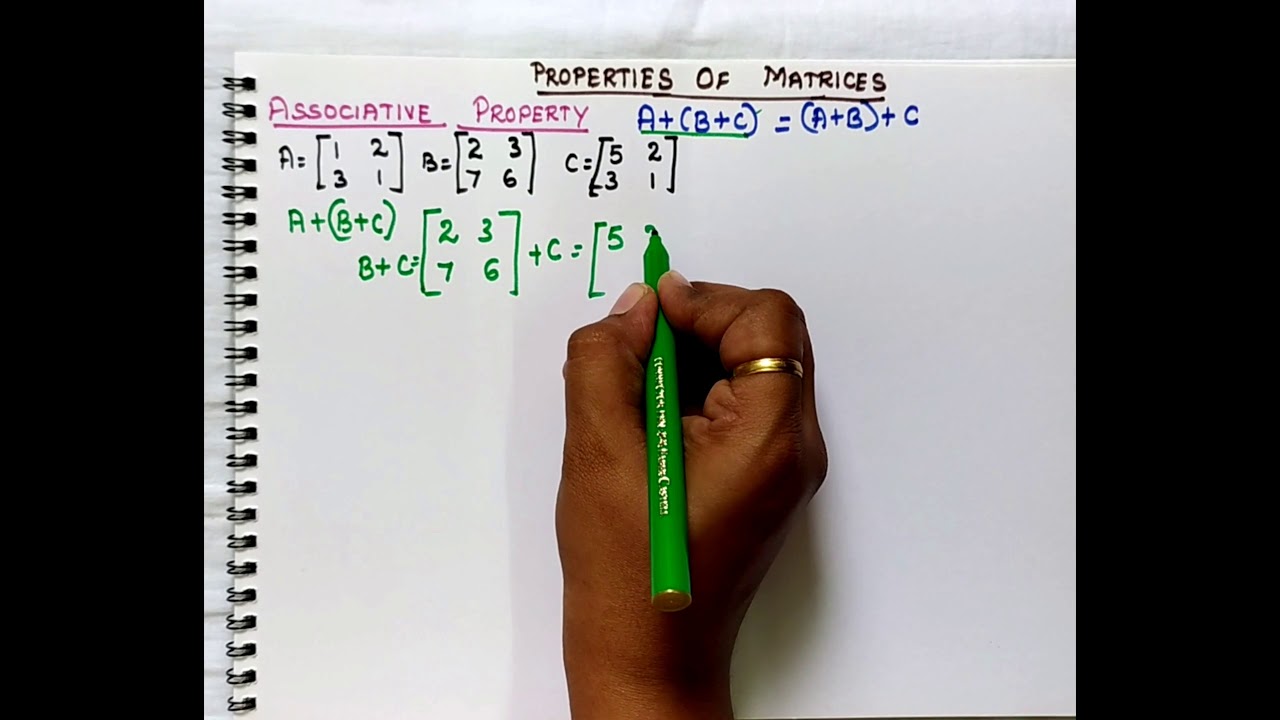 PROPERTIES OF MATRICES
ASSOCIATIVE PROPERTY A+(B+C) = (A+B)+C
A= [1 2] B= [2 3] C= [5 2]
[3 1] [7 6] [3 1]
A+(B+C) [2 3] [5
B+C= [7 6] +C =